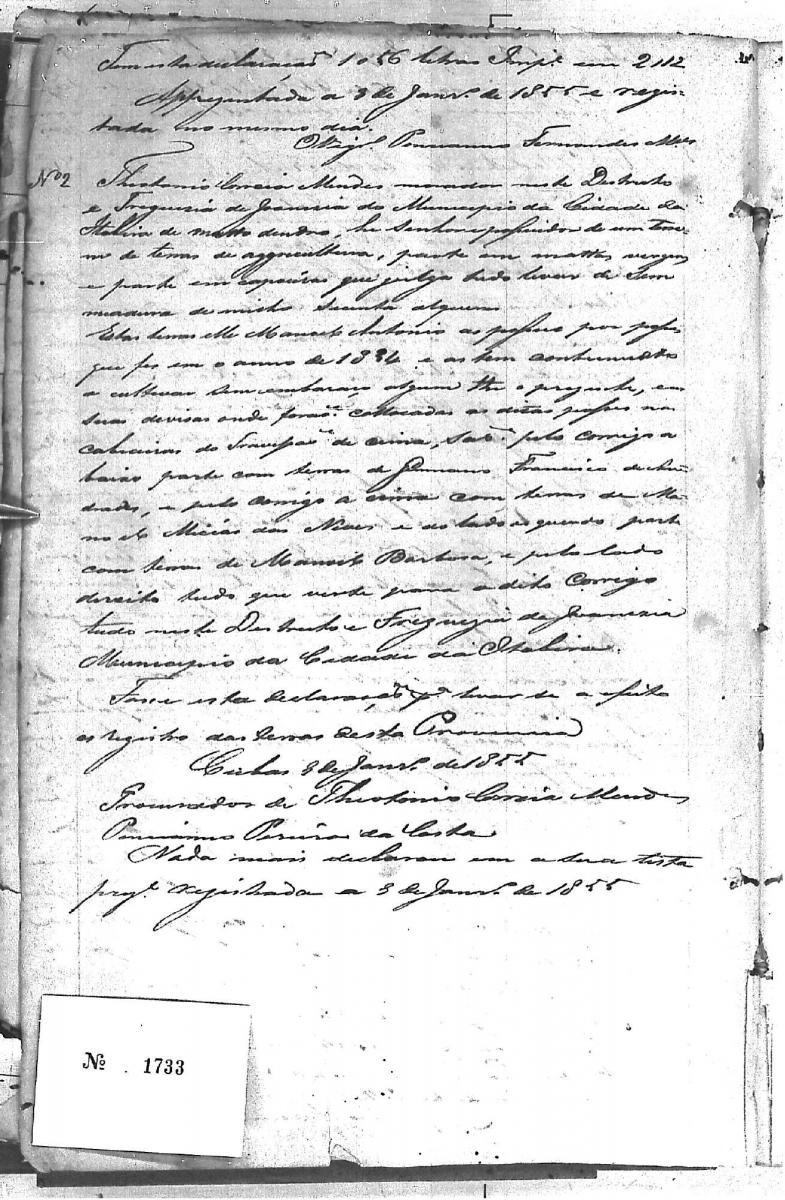 Tem esta declaração 1056 letras Imp.e em 2112
Appresentada a 3 de Janr.o de 1855 e regis-
trada no mesmo dia.
O Vig.o Fernandes
Nº 2
Theotonio Garcia Mendes morador neste Destricto
e Freguezia de Joanezia do Municipio da Cidade da
Itabira de matto dentro, he Senhor e possuidor de um
de terras de aggricultura, parte em mattas virgens
e parte em capoeiras que julga tudo levar de Sem
meadura de milho secenta alqueres
Estas terras Manoel Antonio as possue por posse
que fes em o anno de 1834 e as tem continuado
a cultivar sem embaraço algum the o prezente, em
suas devisas onde forão collocadas as ditas posses nas
cabiceiras do Travessão de cima, São pelo corrigo a
baixo parte com terras de Germano Francisco de An-
drades, e pelo corrigo a cima com terras de Ma-
noel Micias das Neves e do lado esquerdo parte
com terras de Manoel Barboza, e pelo lado
direito tudo que verte para o dito Corrigo
tudo neste Destricto e Freguezia de Joanezia
Municipio da Cidade da Itabira.
Fasse esta declaração p.a levar se a efeito
os registro das terras desta Provincia
3 de Janr.o de 1855
Procurador de Theotonio Garcia Mendes
Pereira da Costa
Nada mais declarou em a sua lista
registrada a 3 de Janr.o de 1855
Nº . 1733